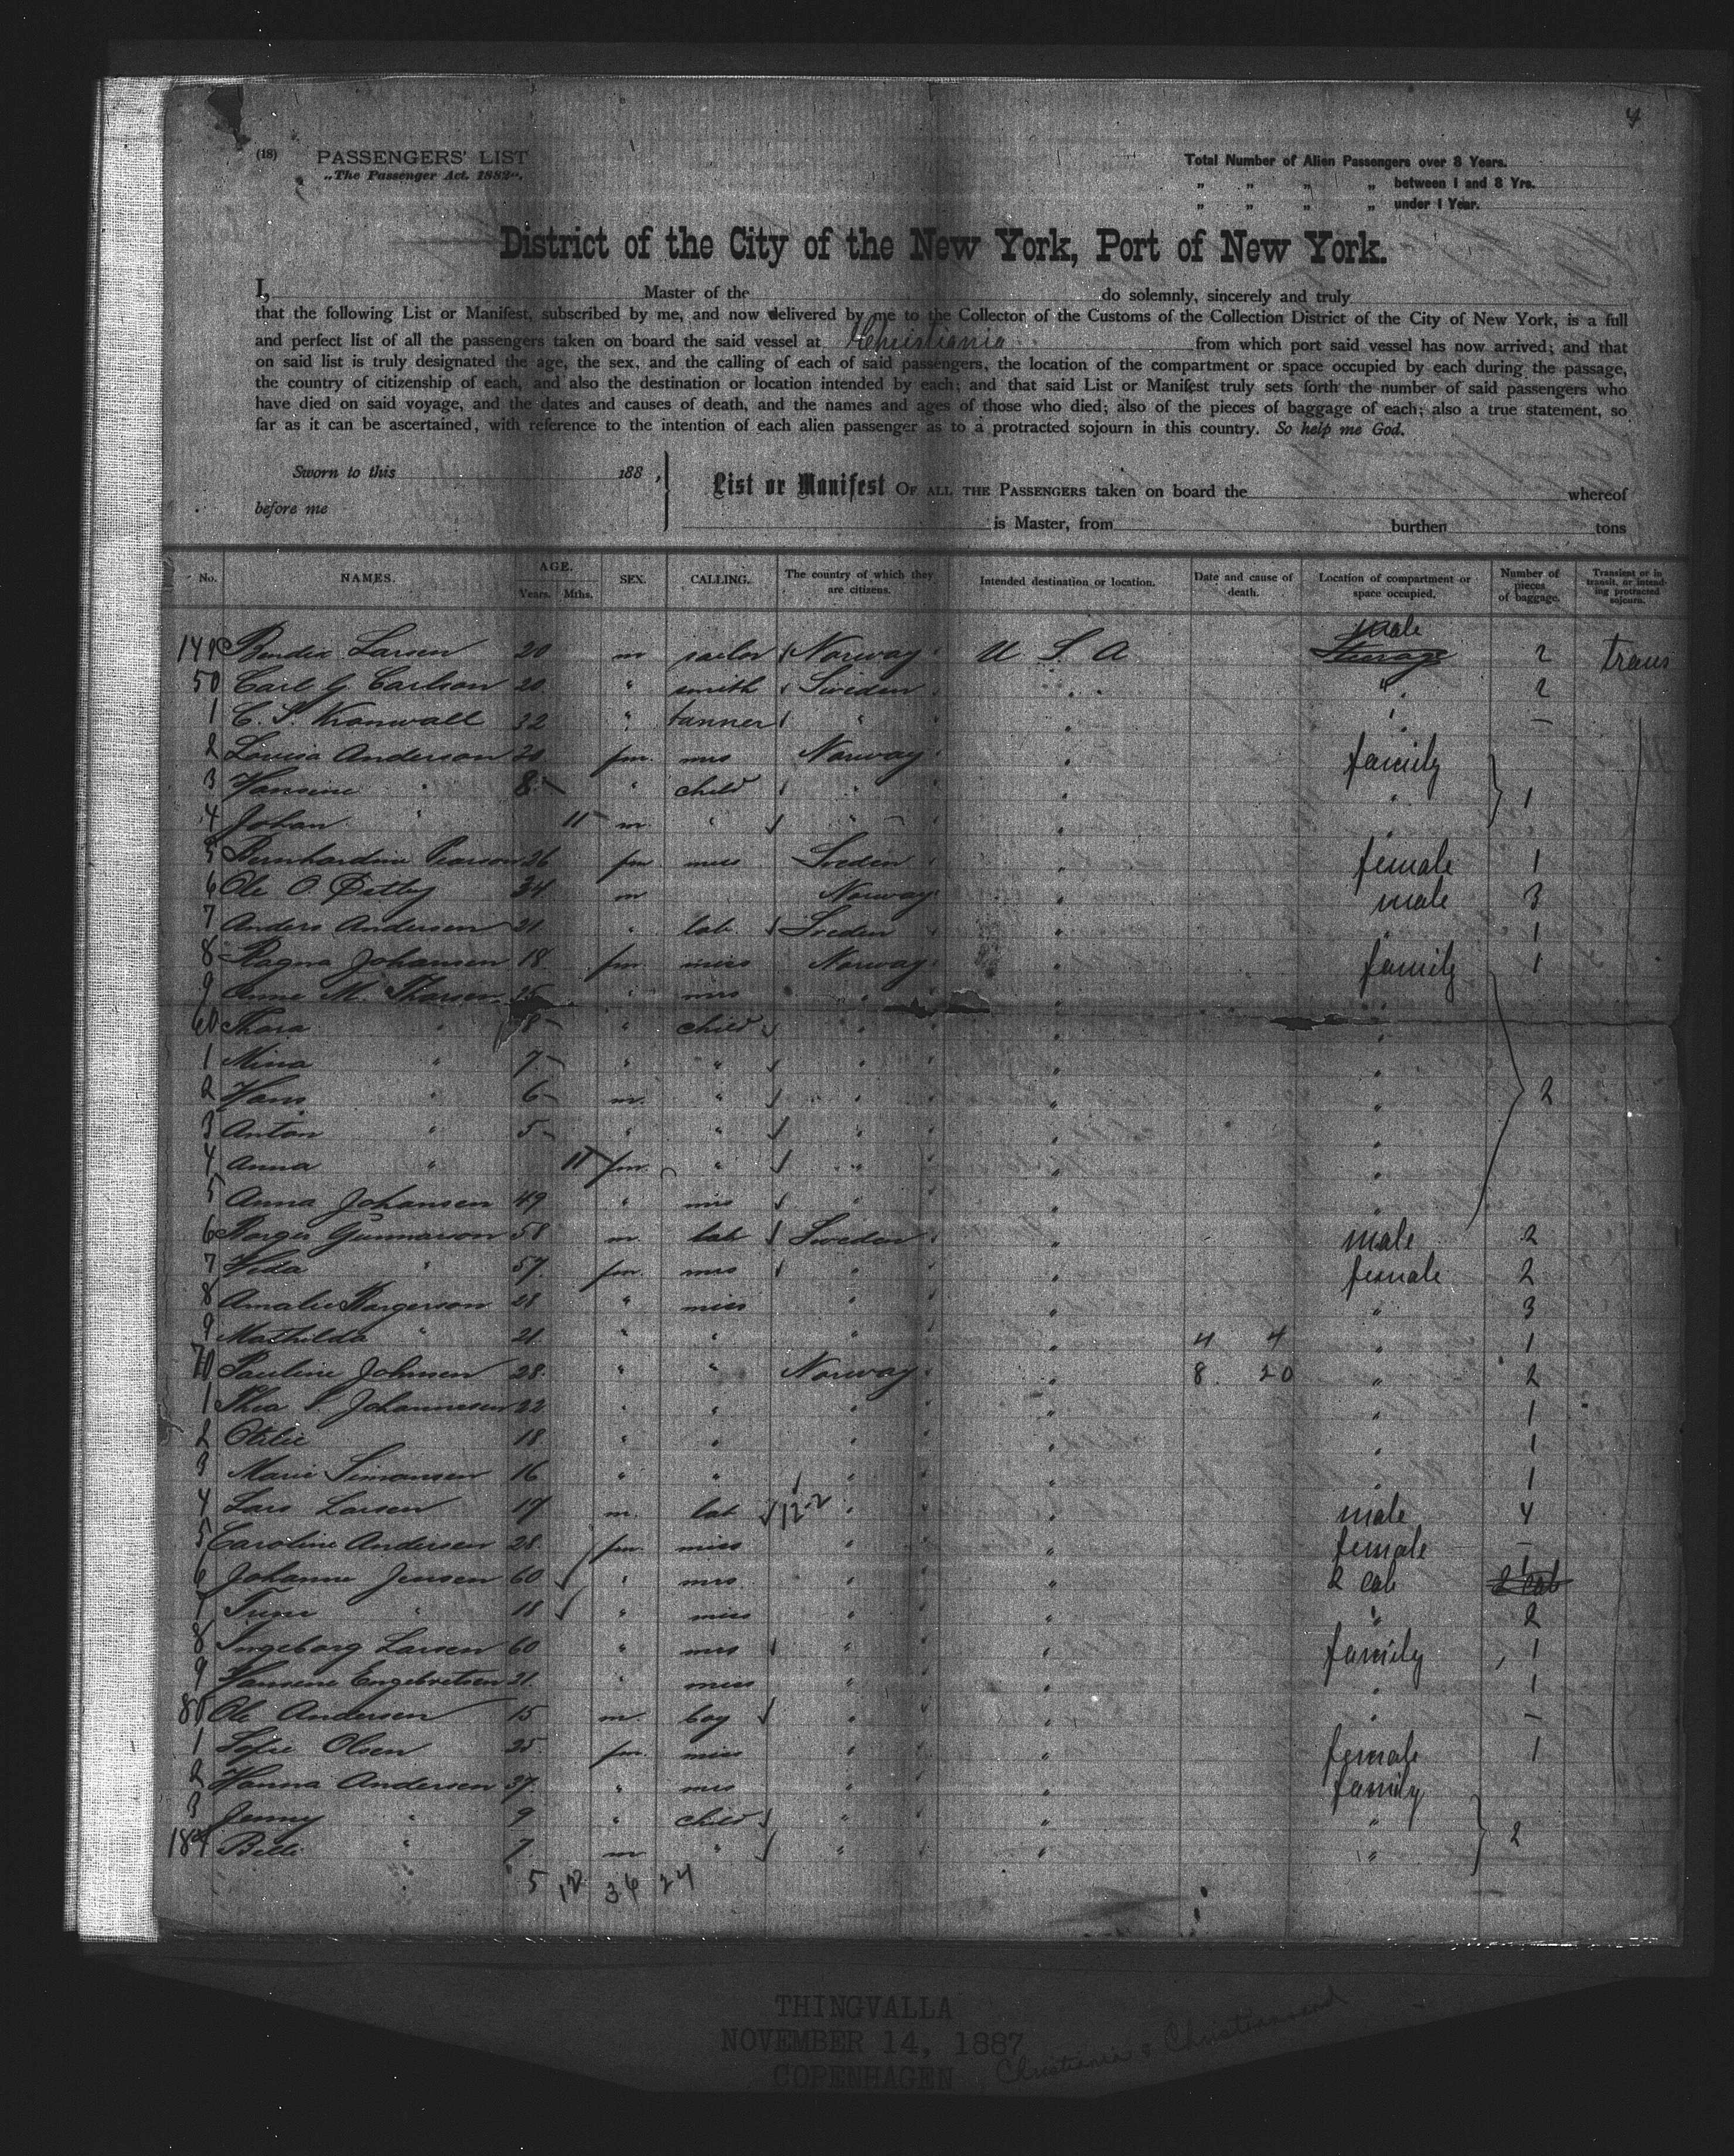 4
(18) PASSENGERS' LIST
„The Passenger Act. 1882“.
Total Number of Alien Passengers over 8 Years.
„ „ „ „ between 1 and 8 Yrs.
„ „ „ „ under 1 Year.
District of the City of the New York, Port of New York.
I, Master of the do solemnly, sincerely and truly
that the following List or Manifest, subscribed by me, and now delivered by me to the Collector of the Customs of the Collection District of the City of New York, is a full
and perfect list of all the passengers taken on board the said vessel at Christiania from which port said vessel has now arrived; and that
on said list is truly designated the age, the sex, and the calling of each of said passengers, the location of the compartment or space occupied by each during the passage,
the country of citizenship of each, and also the destination or location intended by each; and that said List or Manifest truly sets forth the number of said passengers who
have died on said voyage, and the dates and causes of death, and the names and ages of those who died; also of the pieces of baggage of each; also a true statement, so
far as it can be ascertained, with reference to the intention of each alien passenger as to a protracted sojourn in this country. So help me God.
Sworn to this 188 ,
before me
List or Manifest OF ALL THE PASSENGERS taken on board the whereof
is Master, from burthen tons
No. NAMES. AGE. Years. Mths. SEX. CALLING. The country of which they are citizens. Intended destination or location. Date and cause of death. Location of compartment or space occupied. Number of pieces of baggage. Transient or in transit, or intending protracted sojourn.
149 Bendix Larsen 20 m sailor Norway U S A male Steerage 2 trans
50 Carl G Carlson 20 " smith Sweden " " 2
1 C. S. Kronwall 32 " tanner " " " –
2 Lovisa Anderson 30 fm. mrs Norway " family
3 Hansine " 8 – " child " " " 1
4 Johan " 11 – m " " " "
5 Bernhardine Pearson 26 fm miss Sweden " female 1
6 Ole O. 34 m Norway " male 3
7 Anders Andersen 21 " lab Sweden " " 1
8 Ragna Johansen 18 fm miss Norway " family 1
9 Anne M. Thorsen " mrs " " "
60 Thora " 8 – " child " " "
1 Mina " 7 – " " " " "
2 Hans " 6 – m. " " " " 2
3 Anton " 5 – " " " " "
4 Anna " 11 fm. " " " "
5 Anna Johansen 49 " mrs " " "
6 Borger Gunnarson 58 m. lab Sweden " male 2
7 " 57 fm. mrs " " female 2
8 Amalie Borgerson 28 " miss " " " 3
9 Mathilda " 21 " " " " 4 4 " 1
70 Pauline Johnsen 28 " " Norway " 8. 20 " 2
1 Thea Johannesen 22 " " " " " 1
2 Otilie 18 " " " " " 1
3 Marie Simonsen 16 " " " " " 1
4 Lars Larsen 17 m. lab " " male 4
5 Caroline Andersen 28 fm. miss " " female –
6 Johanne Jensen 60 " mrs " " 2 cab 1 2 cab
7 " 18 " miss " " " 2
8 Ingeborg Larsen 60 " mrs " " family 1
9 Hansine Engebretsen 21 " miss " " " 1
80 Ole Andersen 15 m. boy " " " –
1 Sofie Olsen 25 fm. miss " " female 1
2 Hanna Andersen 37 " mrs " " family
3 Jenny " 9 " child " " " 2
184 " 7 m " " " "
5 12 36 24
THINGVALLA
NOVEMBER 14, 1887
COPENHAGEN
Christiania & Christiansand